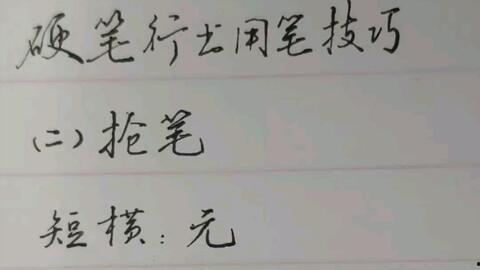 硬笔行书用笔技巧
(二)抢笔
短横:元